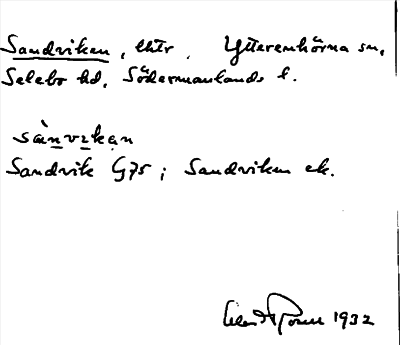 Sandviken, lhtr. Ytterenhörna sn,
Selebo hd, Södermanlands l.
sànvikan
Sandvik G75; Sandviken ek.
1932